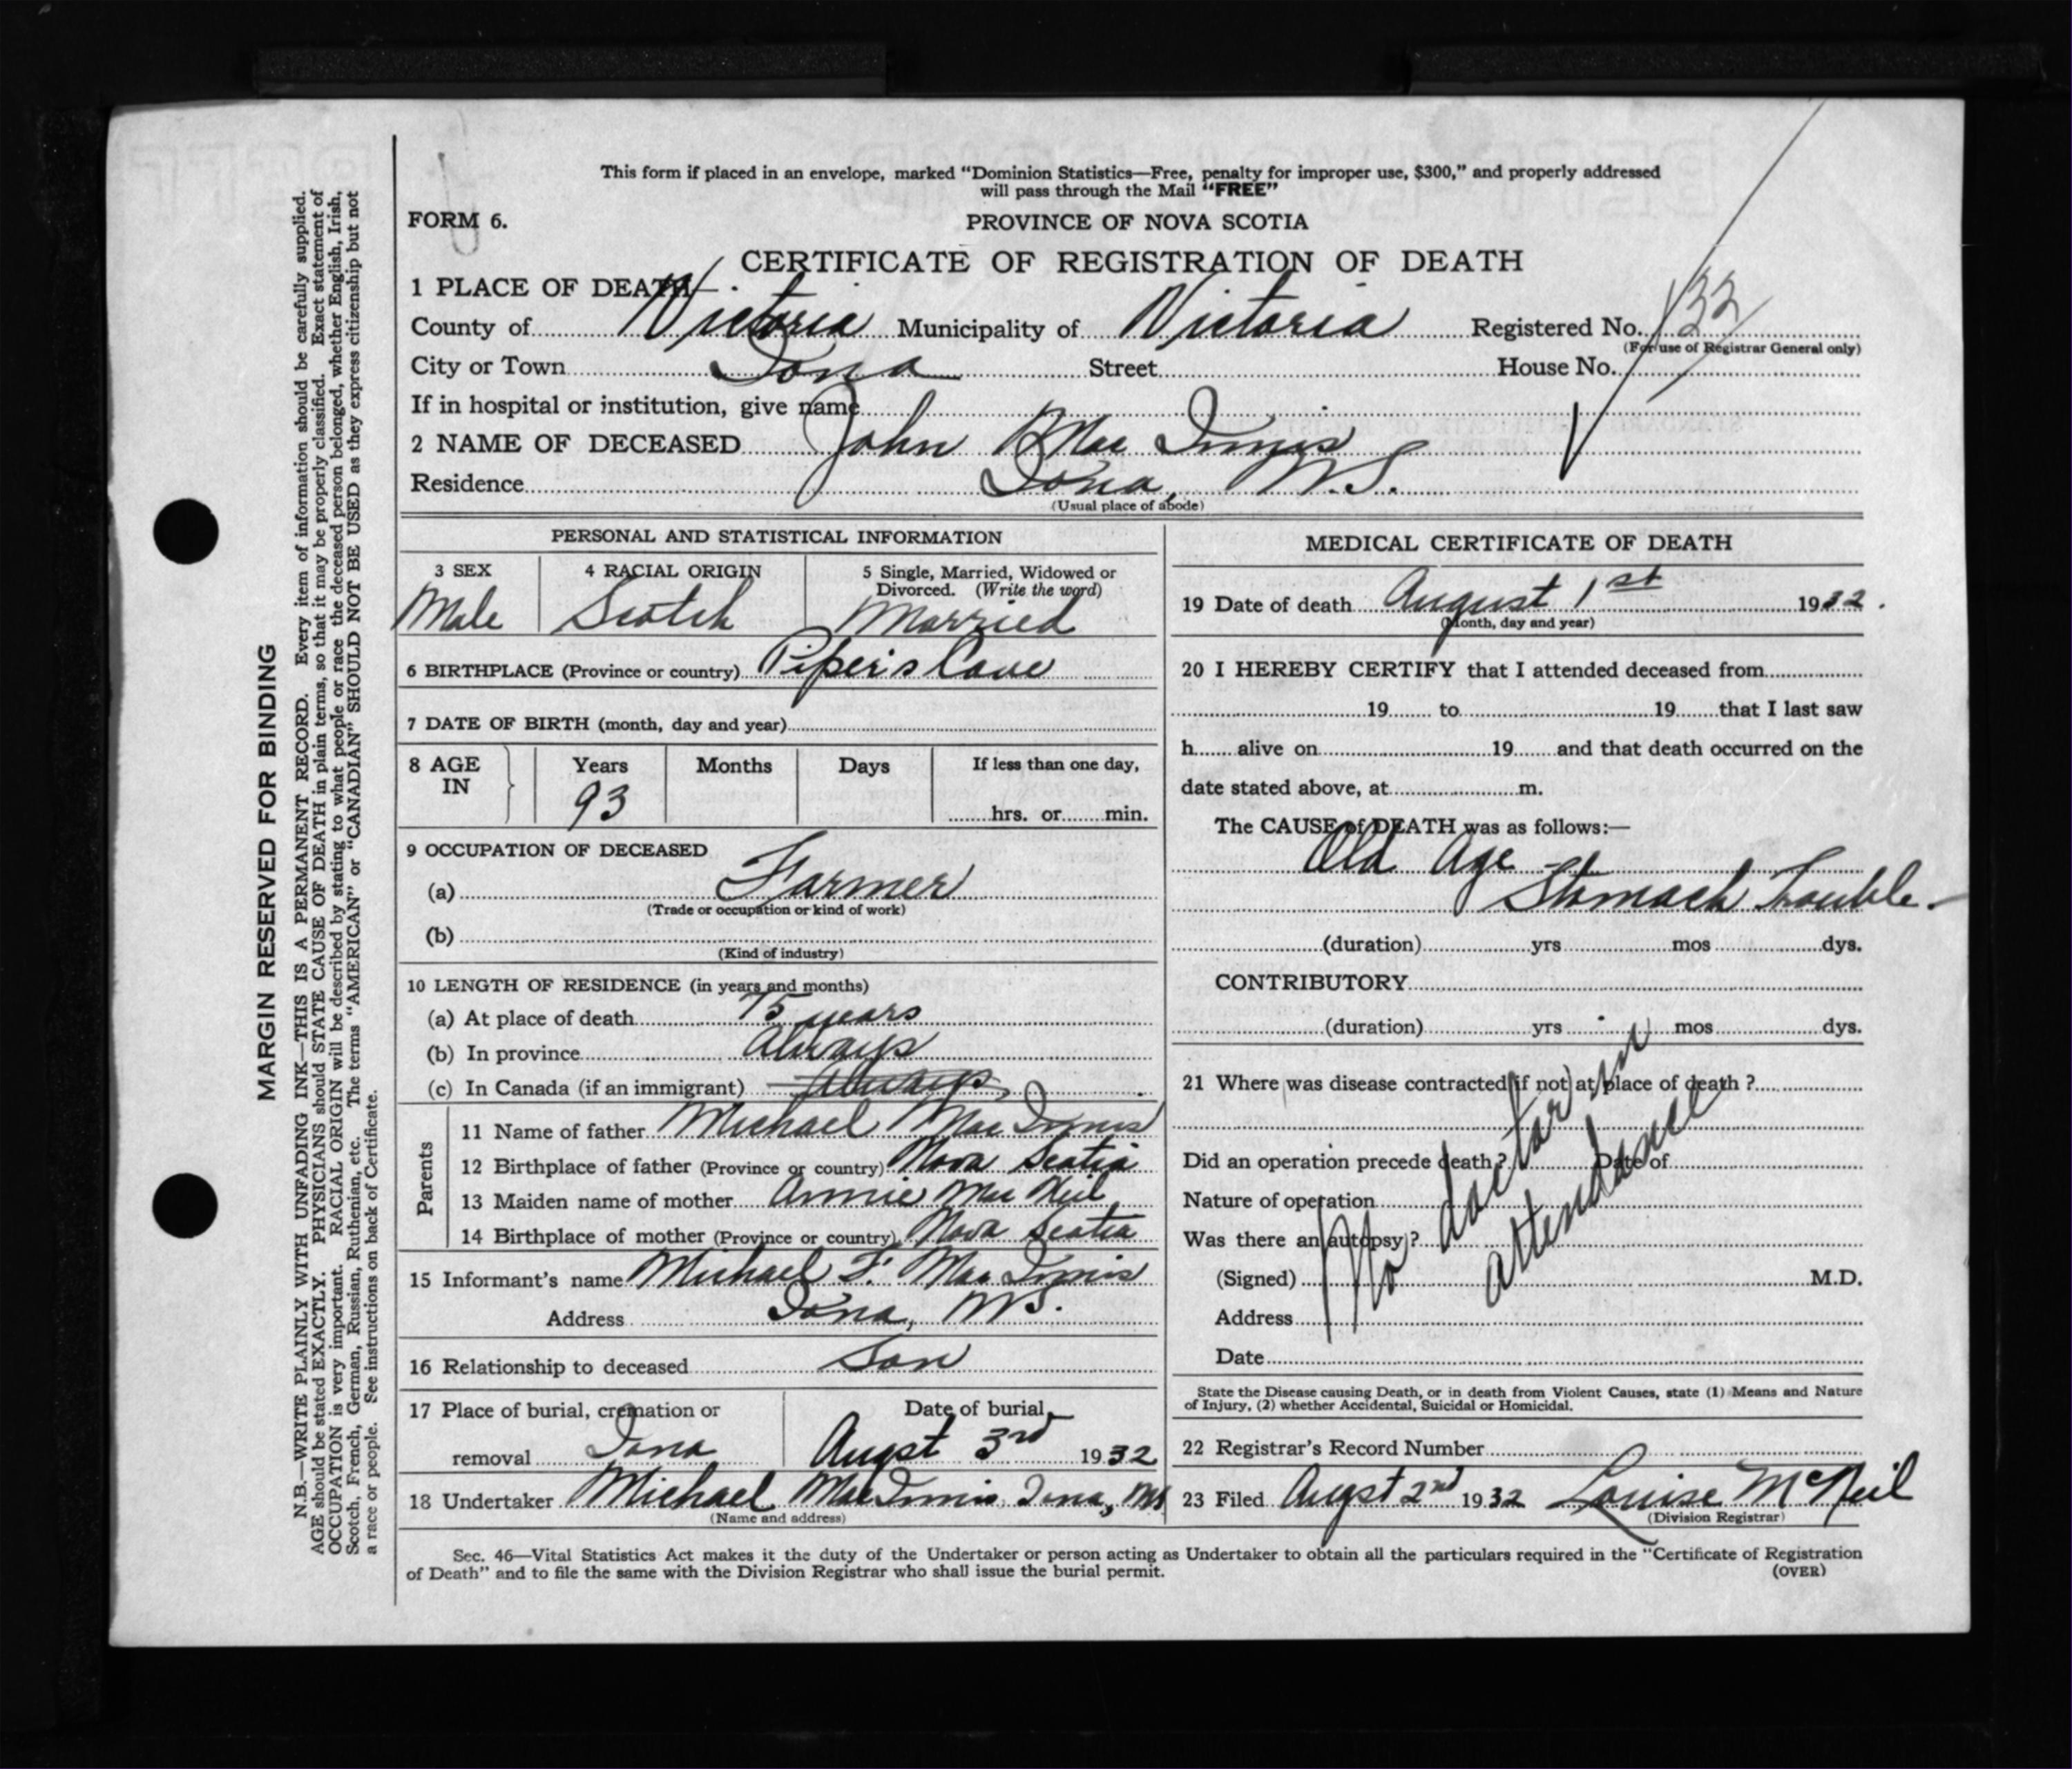 This form if placed in an envelope, marked “Dominion Statistics—Free, penalty for improper use, $300,” and properly addressed
will pass through the Mail “FREE”
FORM 6.
PROVINCE OF NOVA SCOTIA
CERTIFICATE OF REGISTRATION OF DEATH
1 PLACE OF DEATH—
County of Victoria Municipality of Victoria Registered No. 132
(For use of Registrar General only)
City or Town Iona Street House No.
If in hospital or institution, give name
2 NAME OF DECEASED John Mac Innis
Residence Iona, N.S.
(Usual place of abode)
PERSONAL AND STATISTICAL INFORMATION
3 SEX 4 RACIAL ORIGIN 5 Single, Married, Widowed or
Divorced. (Write the word)
Male Scotch Married
6 BIRTHPLACE (Province or country) Piper's Cove
7 DATE OF BIRTH (month, day and year)
8 AGE IN Years Months Days If less than one day,
93 hrs. or min.
9 OCCUPATION OF DECEASED
(a) Farmer
(Trade or occupation or kind of work)
(b)
(Kind of industry)
10 LENGTH OF RESIDENCE (in years and months)
(a) At place of death 75 years
(b) In province Always
(c) In Canada (if an immigrant) Always
Parents
11 Name of father Michael Mac Innis
12 Birthplace of father (Province or country) Nova Scotia
13 Maiden name of mother Annie Mac Neil
14 Birthplace of mother (Province or country) Nova Scotia
15 Informant's name Michael F. Mac Innis
Address Iona, N.S.
16 Relationship to deceased Son
17 Place of burial, cremation or Date of burial
removal Iona Augst 3rd 1932
18 Undertaker Michael MacInnis, Iona, NS
(Name and address)
MEDICAL CERTIFICATE OF DEATH
19 Date of death August 1st 1932.
(Month, day and year)
20 I HEREBY CERTIFY that I attended deceased from
19 to 19 that I last saw
h alive on 19 and that death occurred on the
date stated above, at m.
The CAUSE of DEATH was as follows:—
Old Age -
Stomach Trouble.-
(duration) yrs mos dys.
CONTRIBUTORY
(duration) yrs mos dys.
21 Where was disease contracted if not at place of death ?
Did an operation precede death ? Date of
Nature of operation
Was there an autopsy ?
(Signed) M.D.
Address
Date
No doctor in
attendance
State the Disease causing Death, or in death from Violent Causes, state (1) Means and Nature
of Injury, (2) whether Accidental, Suicidal or Homicidal.
22 Registrar's Record Number
23 Filed Augst 2nd 1932 Louise McNeil
(Division Registrar)
Sec. 46—Vital Statistics Act makes it the duty of the Undertaker or person acting as Undertaker to obtain all the particulars required in the “Certificate of Registration
of Death” and to file the same with the Division Registrar who shall issue the burial permit.
(OVER)
MARGIN RESERVED FOR BINDING
N.B.—WRITE PLAINLY WITH UNFADING INK—THIS IS A PERMANENT RECORD. Every item of information should be carefully supplied.
AGE should be stated EXACTLY. PHYSICIANS should STATE CAUSE OF DEATH in plain terms, so that it may be properly classified. Exact statement of
OCCUPATION is very important. RACIAL ORIGIN will be described by stating to what people or race the deceased person belonged, whether English, Irish,
Scotch, French, German, Russian, Ruthenian, etc. The terms “AMERICAN” or “CANADIAN” SHOULD NOT BE USED as they express citizenship but not
a race or people. See instructions on back of Certificate.